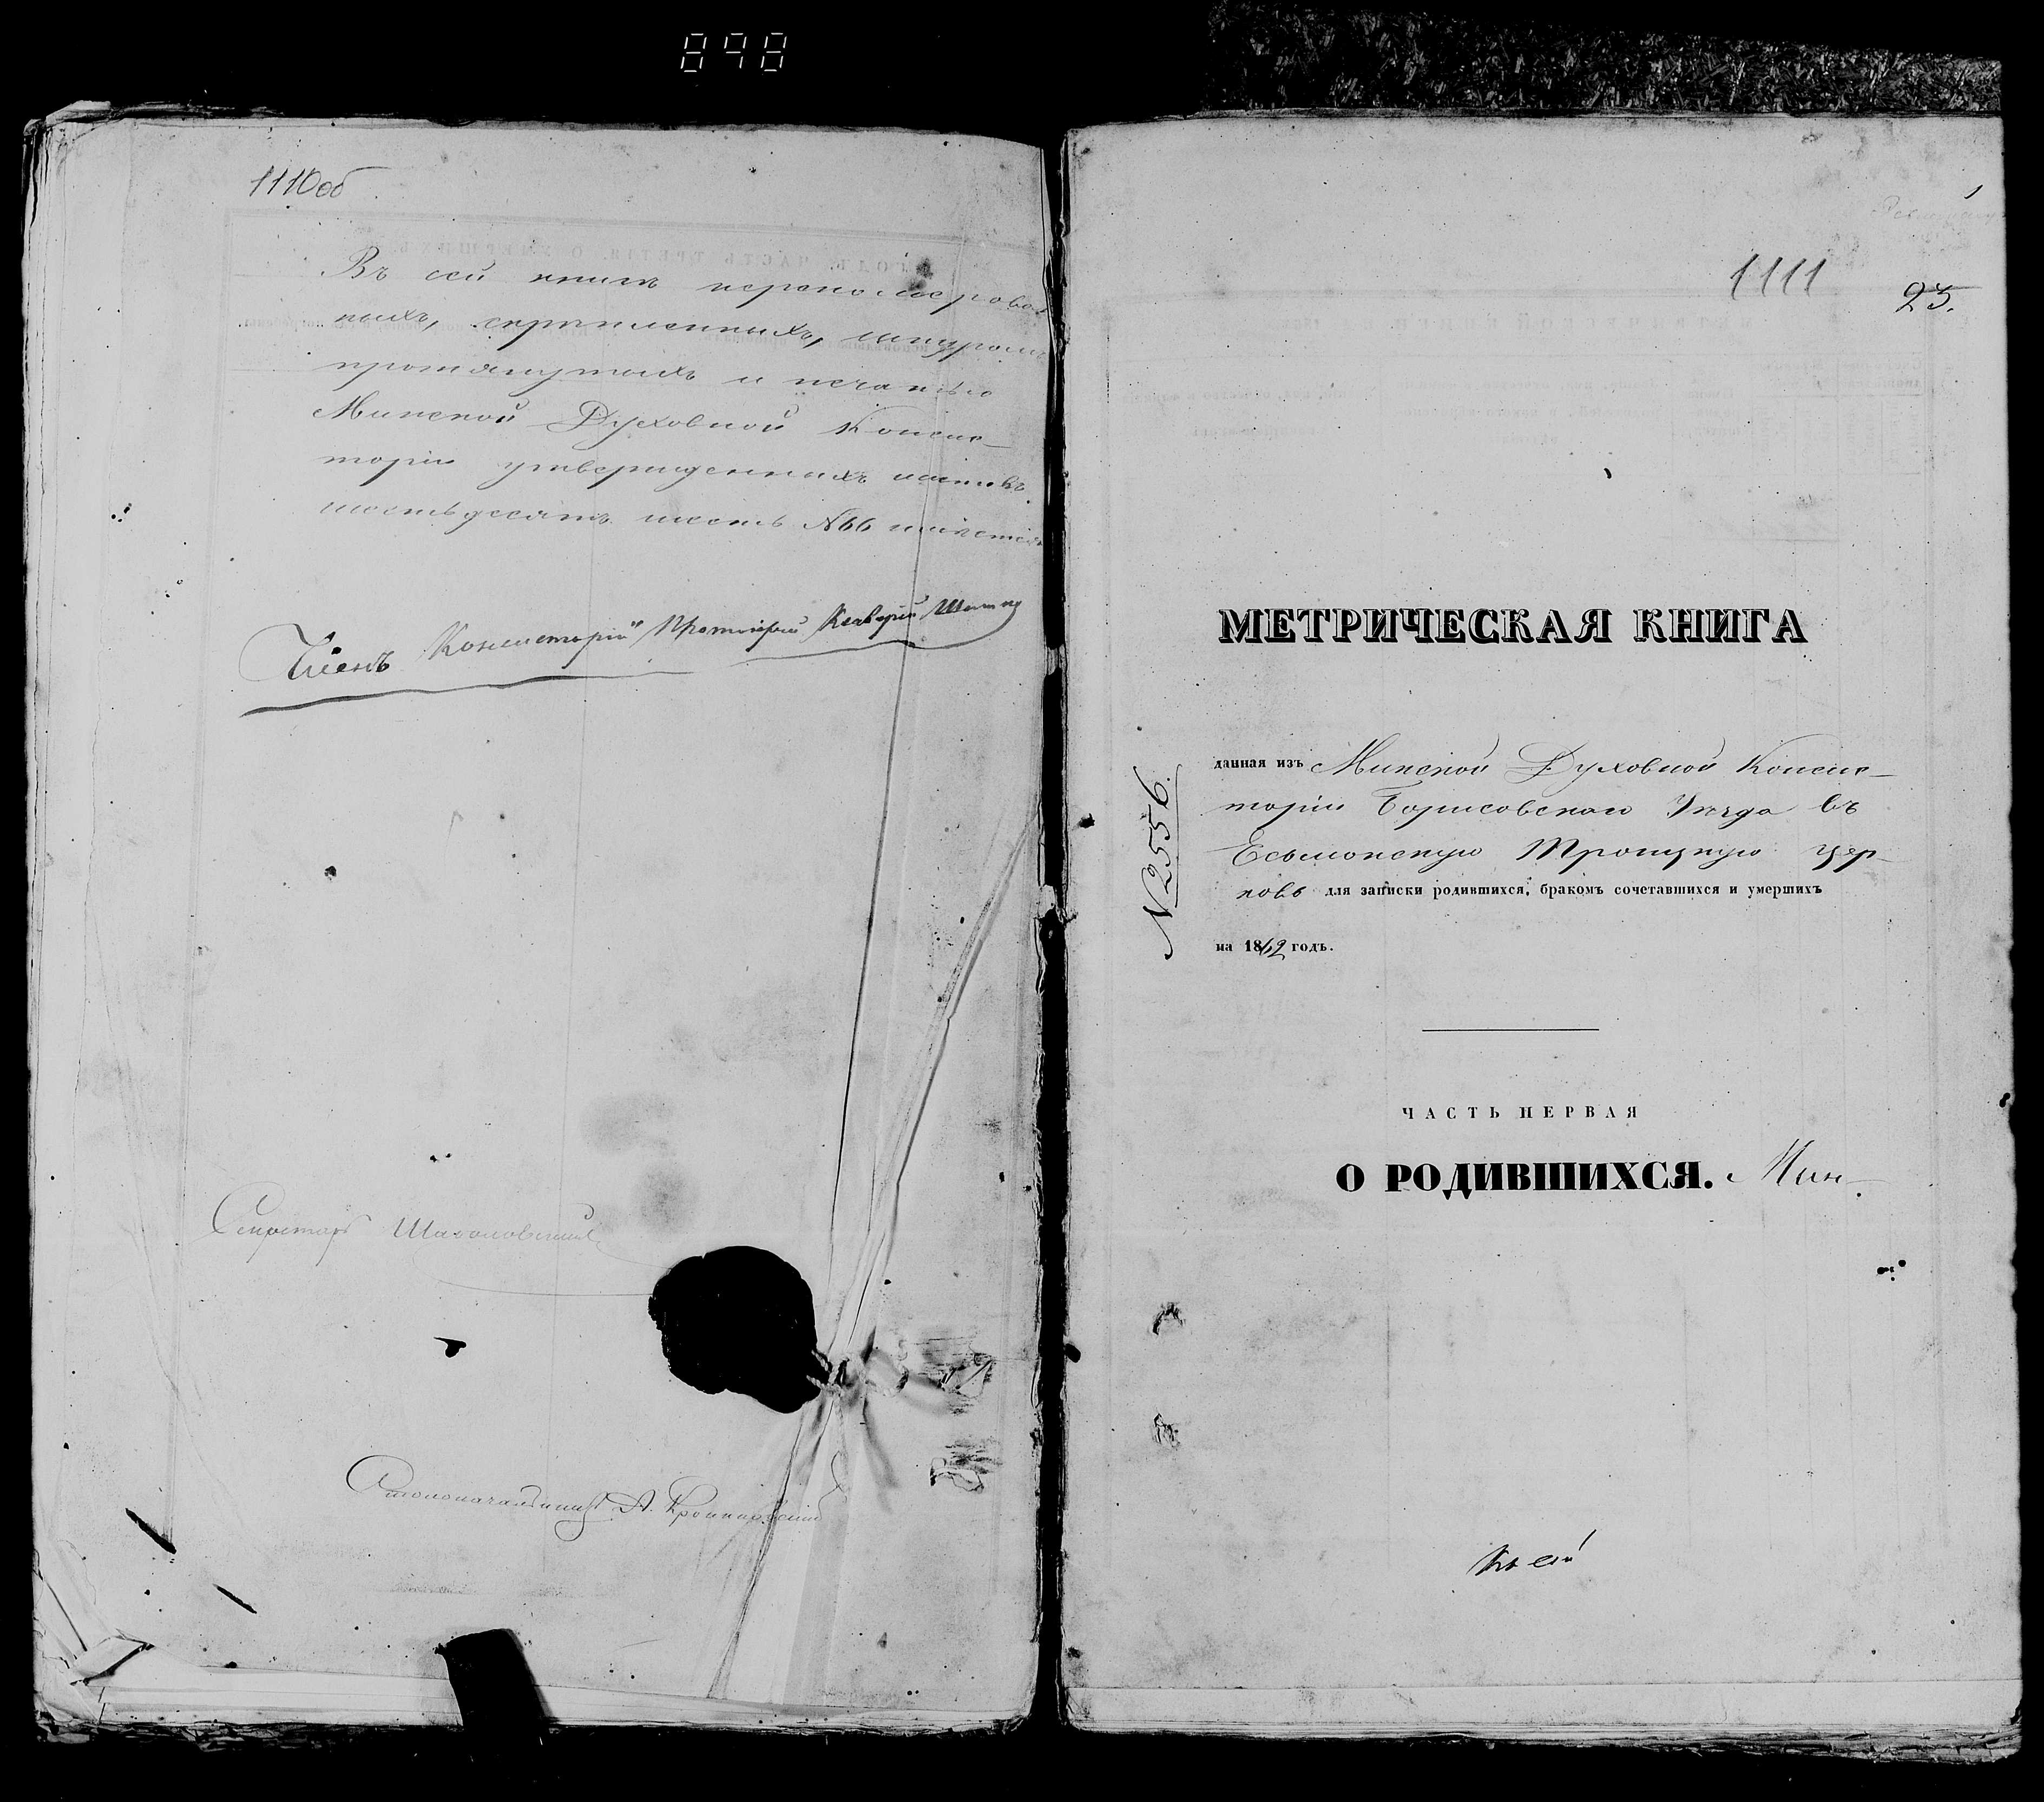 898
1110об
Въ сей книгѣ перенумерован
ныхъ, скрѣпленныхъ, шнуромъ
протянутыхъ и печатью
Минской Духовной Консис-
торіи утвержденныхъ листовъ
шестьдесятъ шесть №66 листовъ
Членъ Консисторіи Протоіерей
Секретарь
Столоначальникъ А.
1
1111
25.
МЕТРИЧЕСКАЯ КНИГА
№2556.
данная изъ Минской Духовной Консис-
торіи Борисовскаго Уѣзда въ
Есьмонскую Троицкую цер-
ковь для записки родившихся, бракомъ сочетавшихся и умершихъ
на 1862 годъ.
ЧАСТЬ ПЕРВАЯ
О РОДИВШИХСЯ. Мин-
Къ сей